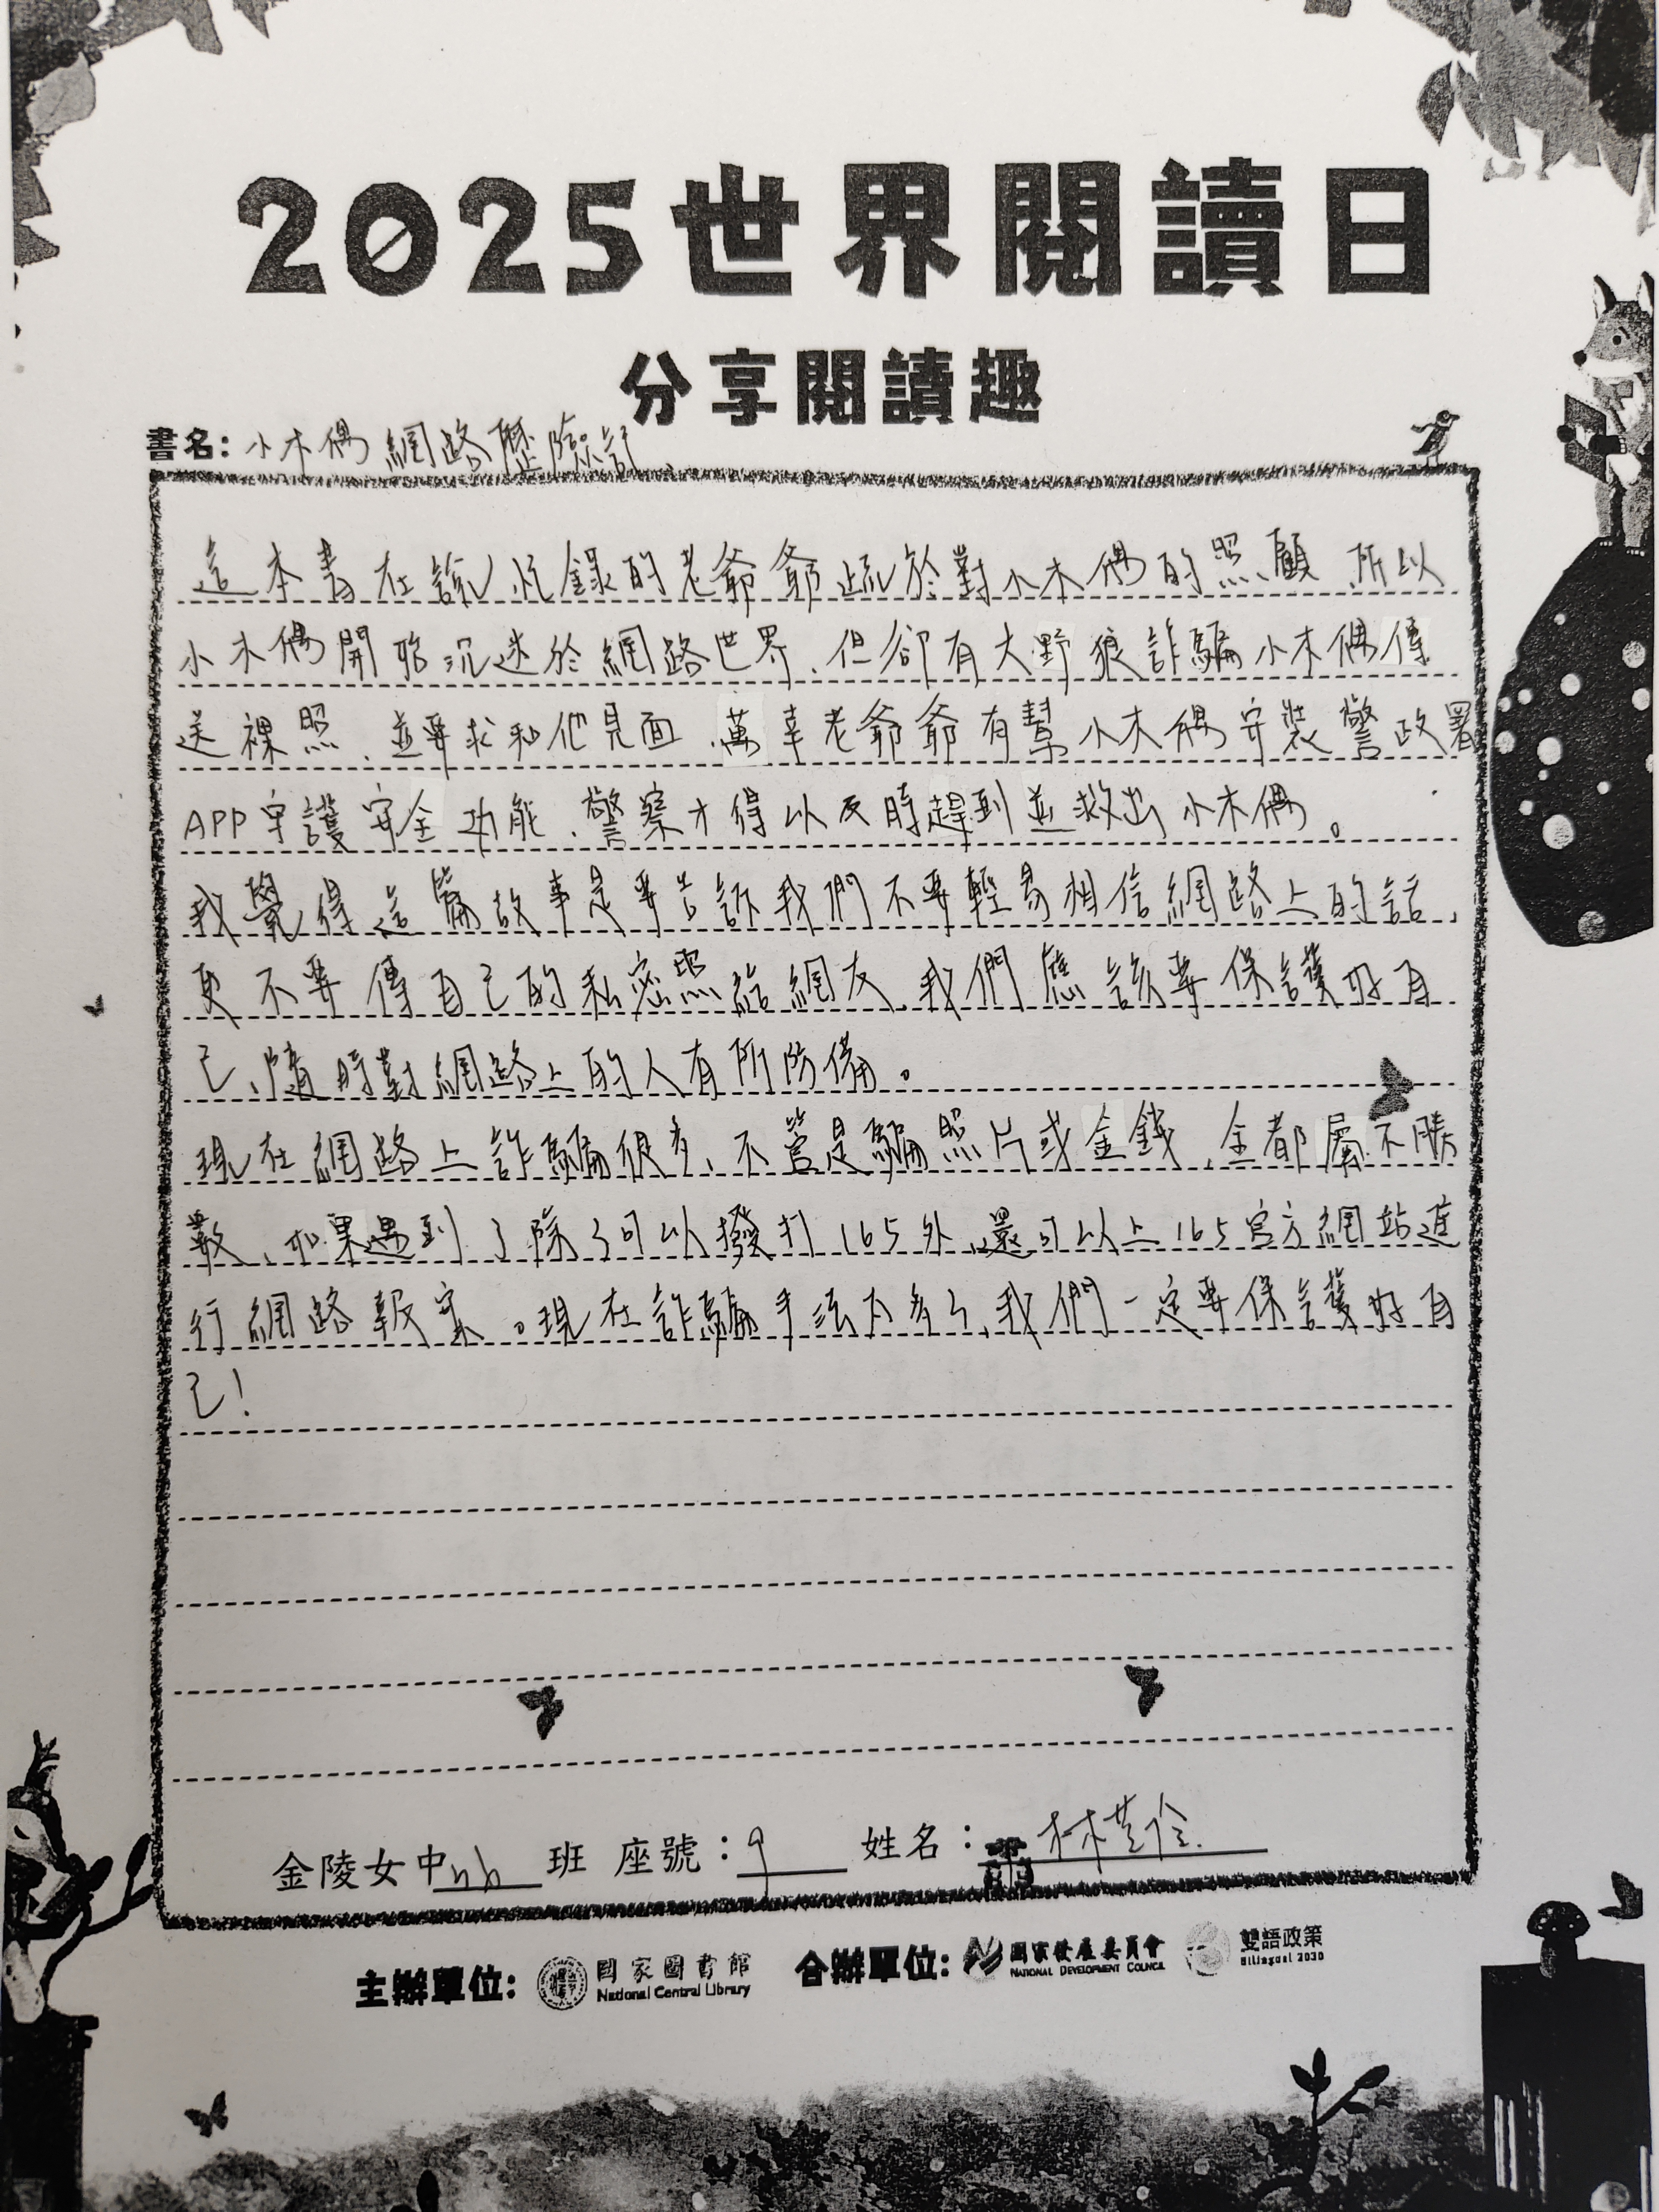 2025世界閱讀日
分享閱讀趣
書名：小木偶網路歷險記
這本書在說忙錄的老爺爺疏於對小木偶的照顧、所以
小木偶開始沉迷於網路世界、但卻有大野狼詐騙小木偶傳
送裸照、並要求和他見面、萬幸老爺爺有幫小木偶安裝警政署
APP守護安全功能、警察才得以及時趕到並救出小木偶。
我覺得這篇故事是要告訴我們不要輕易相信網路上的話、
更不要傳自己的私密照給網友、我們應該要保護好自
己、隨時對網路上的人有所防備。
現在網路上詐騙很多、不管是騙照片或金錢、全都屬不勝
數、如果遇到了除了可以撥打165外、還可以上165官方網站進
行網路報案。現在詐騙手法太多了、我們一定要保護好自
己！
金陵女中 班 座號：9 姓名：林
主辦單位： 國家圖書館 合辦單位： 國家發展委員會 雙語政策
National Central Library NATIONAL DEVELOPMENT COUNCIL Bilingual 2030